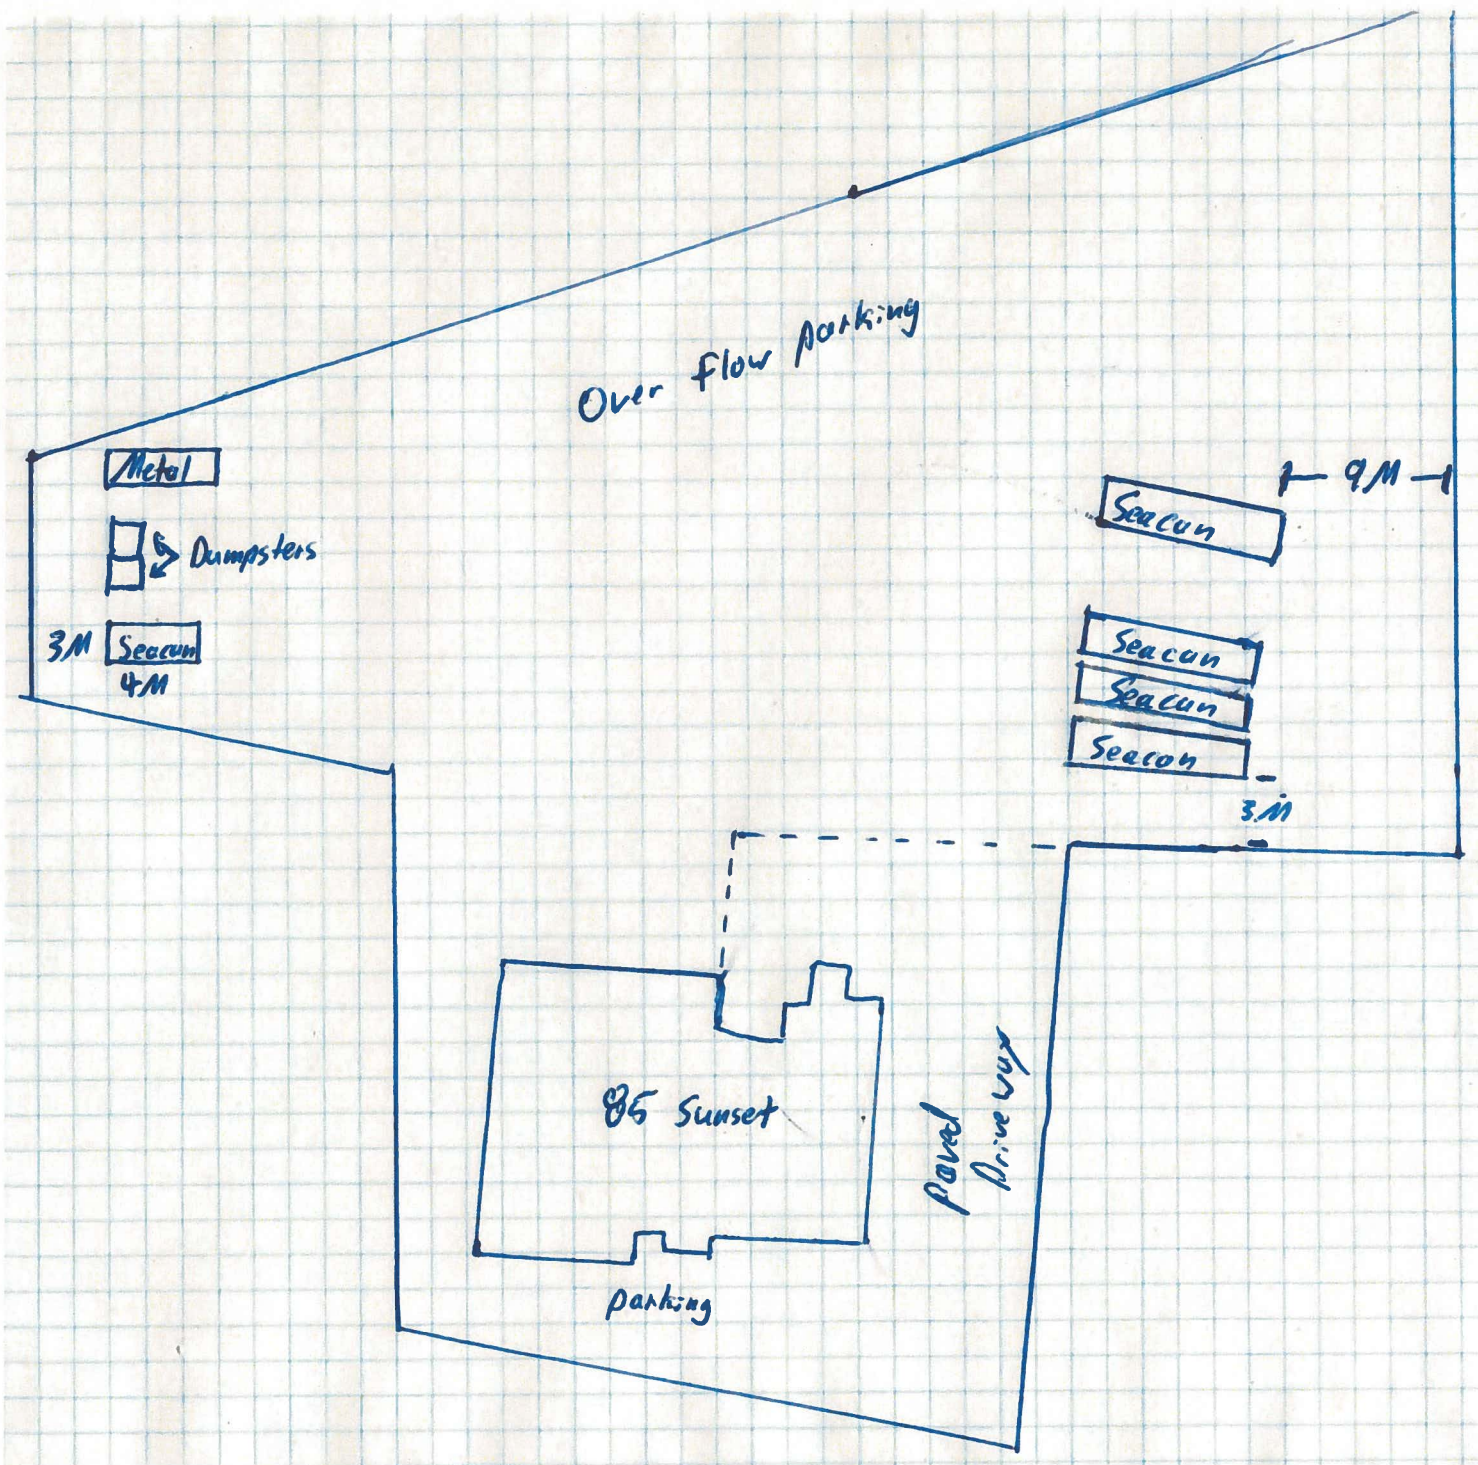 Over Flow parking
Metal
9M
Seacan
Dumpsters
3M
Seacan
4M
Seacan
Seacan
Seacan
3M
85 Sunset
paved
Driveway
parking